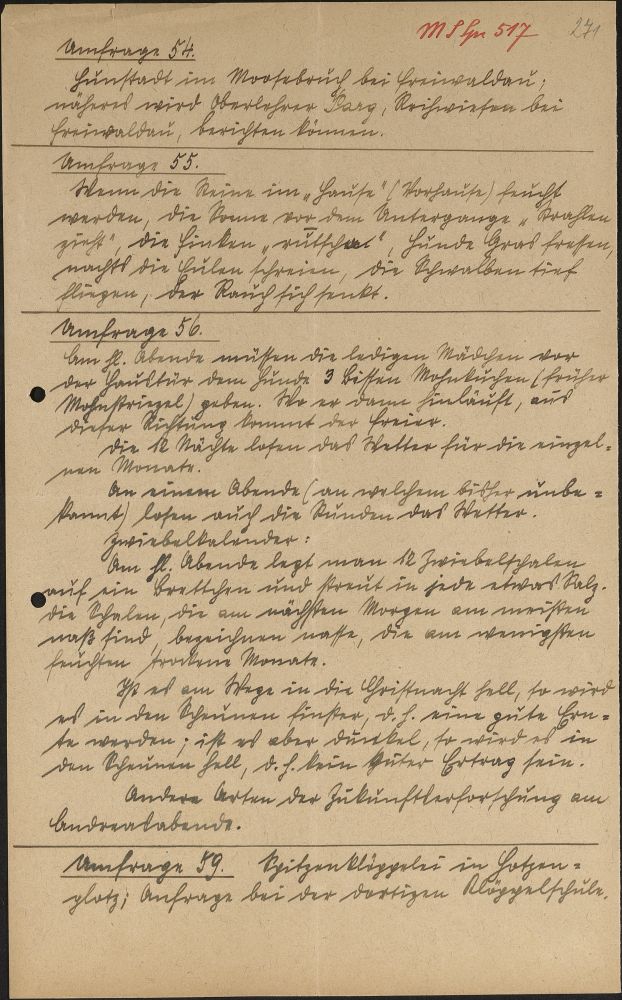 MS Spr 517 271
Umfrage 54.
Hunstadt im Moosebruch bei Freiwaldau;
näheres wird Oberlehrer, Reihwiesen bei
Freiwaldau, berichten können.
Umfrage 55.
Wenn die Steine im „Hause" (Vorhause) feucht
werden, die Sonne vor dem Untergange „Strahlen
zieht", die Finken „rülschen", Hunde Gras fressen,
nachts die Eulen schreien, die Schwalben tief
fliegen, der Rauch sich senkt.
Umfrage 56.
Am hl. Abende müssen die ledigen Mädchen vor
der Haustür dem Hunde 3 Bissen Mohnkuchen (früher
Mohnstriezel) geben. Wo er dann hinläuft, aus
dieser Richtung kommt der Freier.
Die 12 Nächte losen das Wetter für die einzel=
nen Monate.
An einem Abende (an welchem bisher unbe=
kannt) losen auch die Stunden das Wetter.
Zwiebelkalender:
Am hl. Abende legt man 12 Zwiebelschalen
auf ein Brettchen und streut in jede etwas Salz.
Die Schalen, die am nächsten Morgen am meisten
naß sind, bezeichnen nasse, die am wenigsten
feuchten, trockene Monate.
Ist es am Wege in die Christnacht hell, so wird
es in den Scheunen finster, d. h. eine gute Ern=
te werden; ist es aber dunkel, so wird es in
den Scheunen hell, d. h. kein guter Ertrag sein.
Andere Arten der Zukunftserforschung am
Andreasabende.
Umfrage 59. Spitzenklöppelei in Hotzen=
plotz; Anfrage bei der dortigen Klöppelschule.